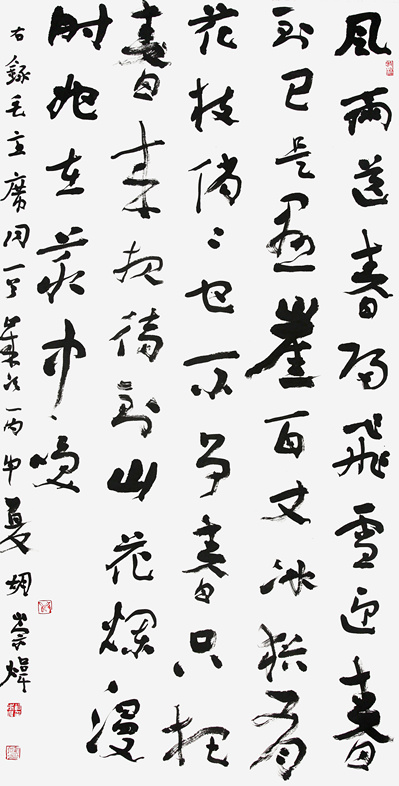 風雨送春歸飛雪迎春
到已是懸崖百丈冰猶有
花枝俏〻也不爭春只把
春來報待到山花爛漫
时她在叢中笑
右錄毛主席词一首歲次丙申夏胡崇煒